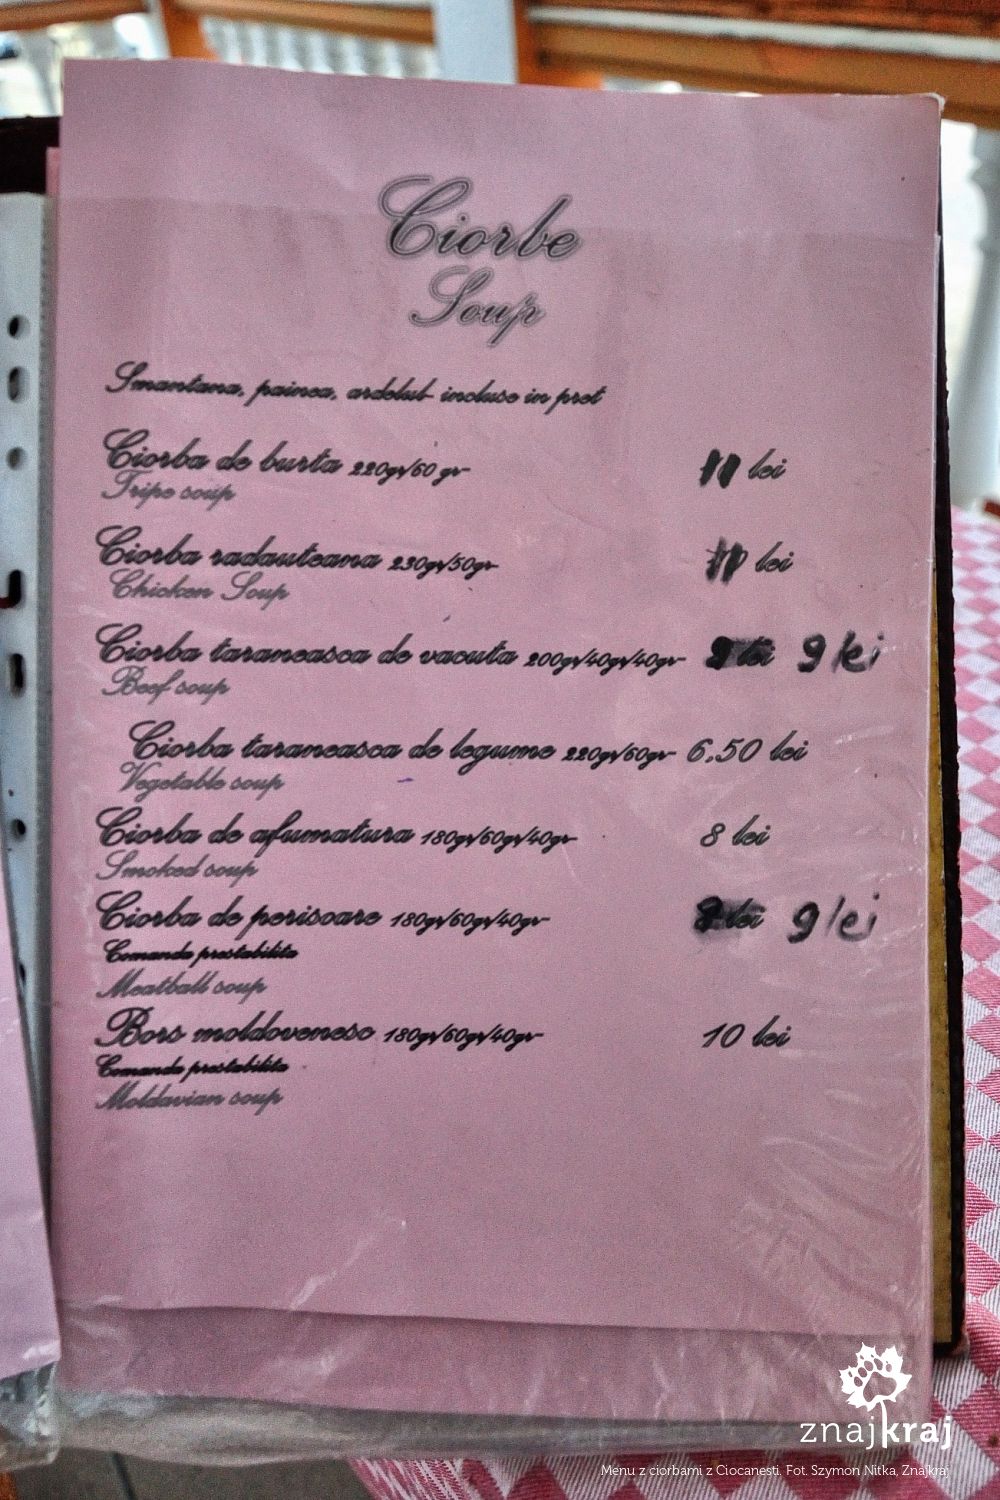 Ciorbe
Soup
Smantana, painea, ardeiul incluse in pret
Ciorba de burta 220gr/60 gr 11 lei
Tripe soup
Ciorba radauteana 230gr/50gr 11 lei
Chicken Soup
Ciorba taraneasca de vacuta 200gr/40gr/40gr 9 lei
Beef soup
Ciorba taraneasca de legume 220gr/60gr 6,50 lei
Vegetable soup
Ciorba de afumatura 180gr/60gr/40gr 8 lei
Smoked soup
Ciorba de perisoare 180gr/60gr/40gr 9 lei
Comanda prestabilita
Meatball soup
Bors moldovenesc 180gr/60gr/40gr 10 lei
Comanda prestabilita
Moldavian soup
znajkraj
Menu z ciorbami z Ciocanesti. Fot. Szymon Nitka, Znajkraj